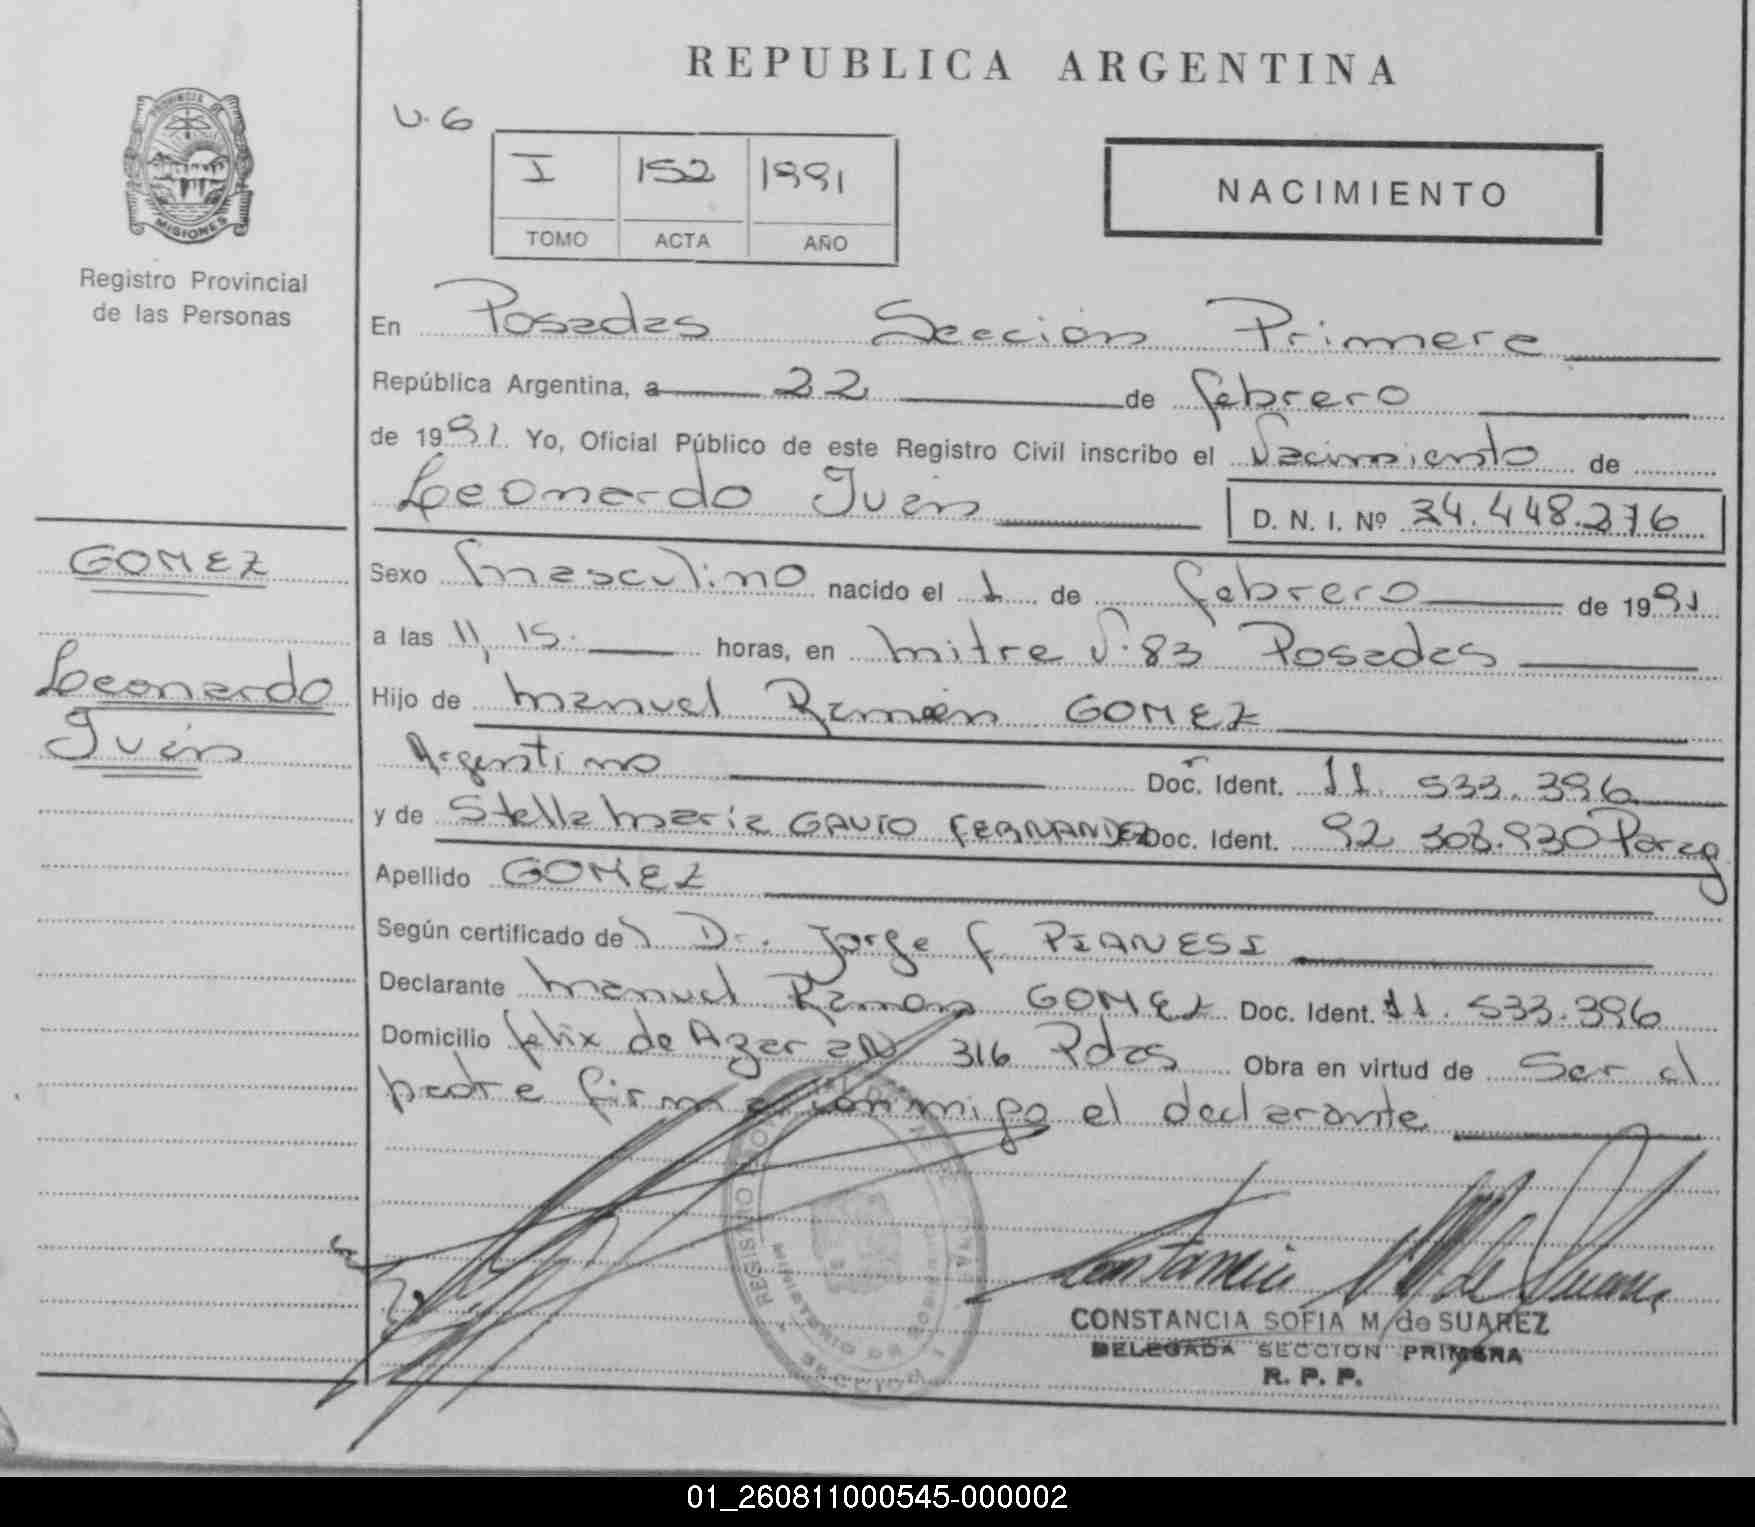 REPUBLICA ARGENTINA
PROVINCIA
MISIONES
Registro Provincial
de las Personas
U.6
I 152 1991
TOMO ACTA AÑO
NACIMIENTO
En Posadas Sección Primera
República Argentina, a 22 de febrero
de 1991 Yo, Oficial Público de este Registro Civil inscribo el Nacimiento de
Leonardo Iván D. N. I. Nº 34.448.276
GOMEZ
Leonardo
Iván
Sexo masculino nacido el 1 de febrero de 1991
a las 11,15 horas, en mitre N.83 Posadas
Hijo de manuel Ramón GOMEZ
Argentino Doc. Ident. 11.533.396
y de Stella maria GAUTO FERNANDEZ Doc. Ident. 92 308.930 Parag
Apellido GOMEZ
Según certificado del Dr. Jorge f. PIANESI
Declarante manuel Ramon GOMEZ Doc. Ident. 11.533.396
Domicilio felix de Azara 316 Pdas Obra en virtud de Ser el
padre firma conmigo el declarante
CONSTANCIA SOFIA M. de SUAREZ
DELEGADA SECCION PRIMERA
R. P. P.
01_260811000545-000002